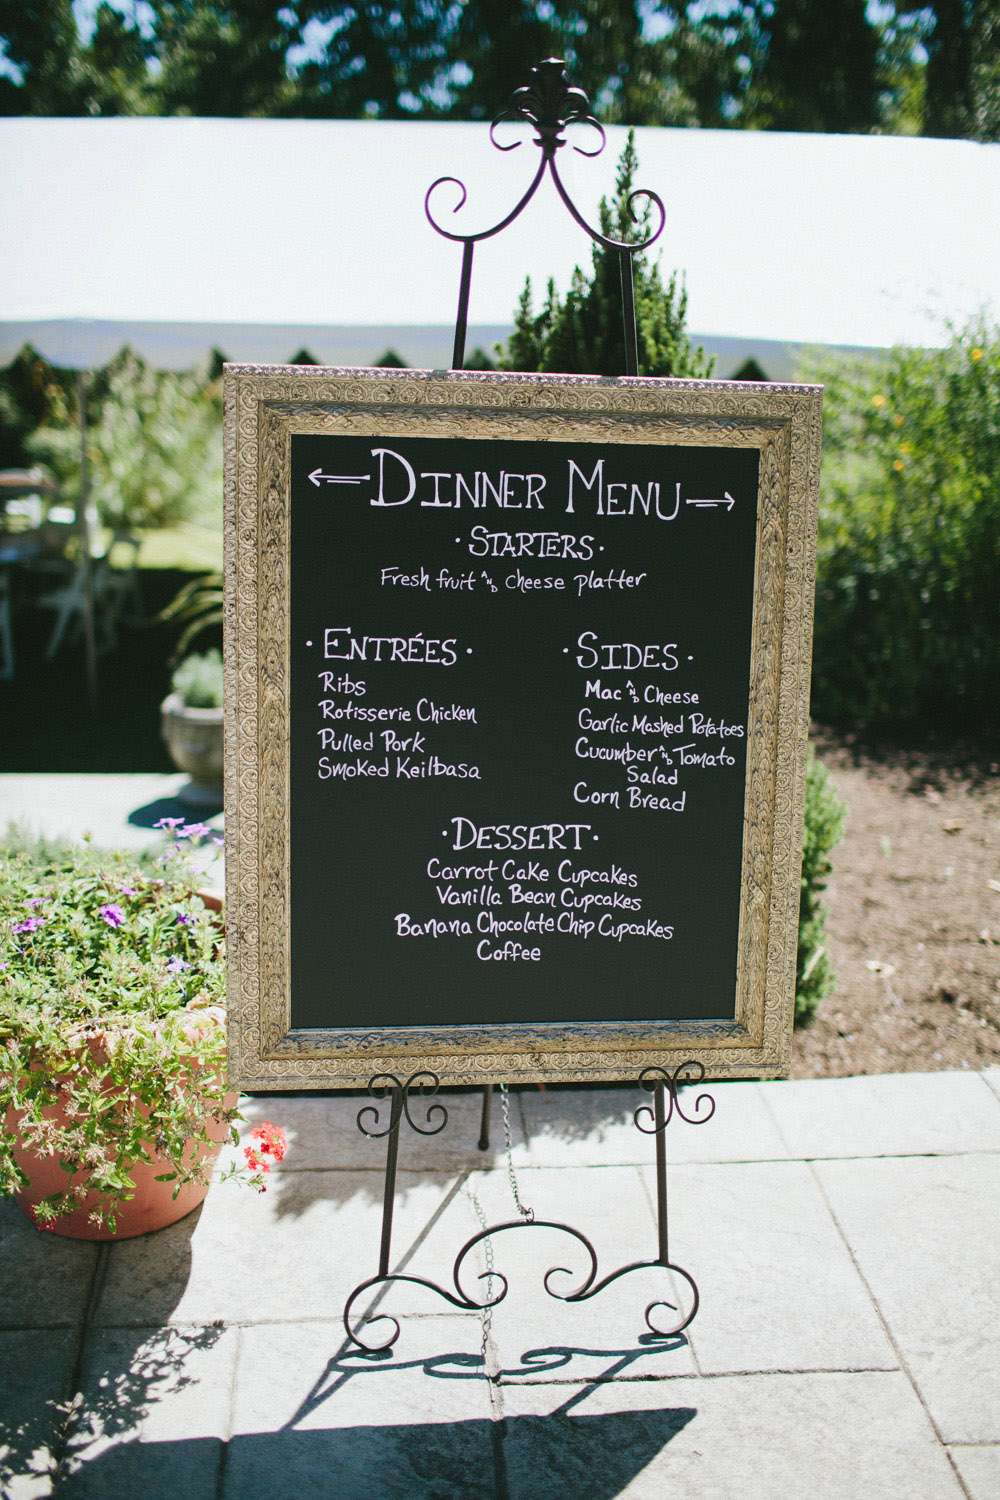 DINNER MENU
· STARTERS ·
Fresh fruit AND cheese platter
· ENTRÉES ·
Ribs
Rotisserie Chicken
Pulled Pork
Smoked Keilbasa
· SIDES ·
Mac AND Cheese
Garlic Mashed Potatoes
Cucumber AND Tomato
Salad
Corn Bread
· DESSERT ·
Carrot Cake Cupcakes
Vanilla Bean Cupcakes
Banana Chocolate Chip Cupcakes
Coffee